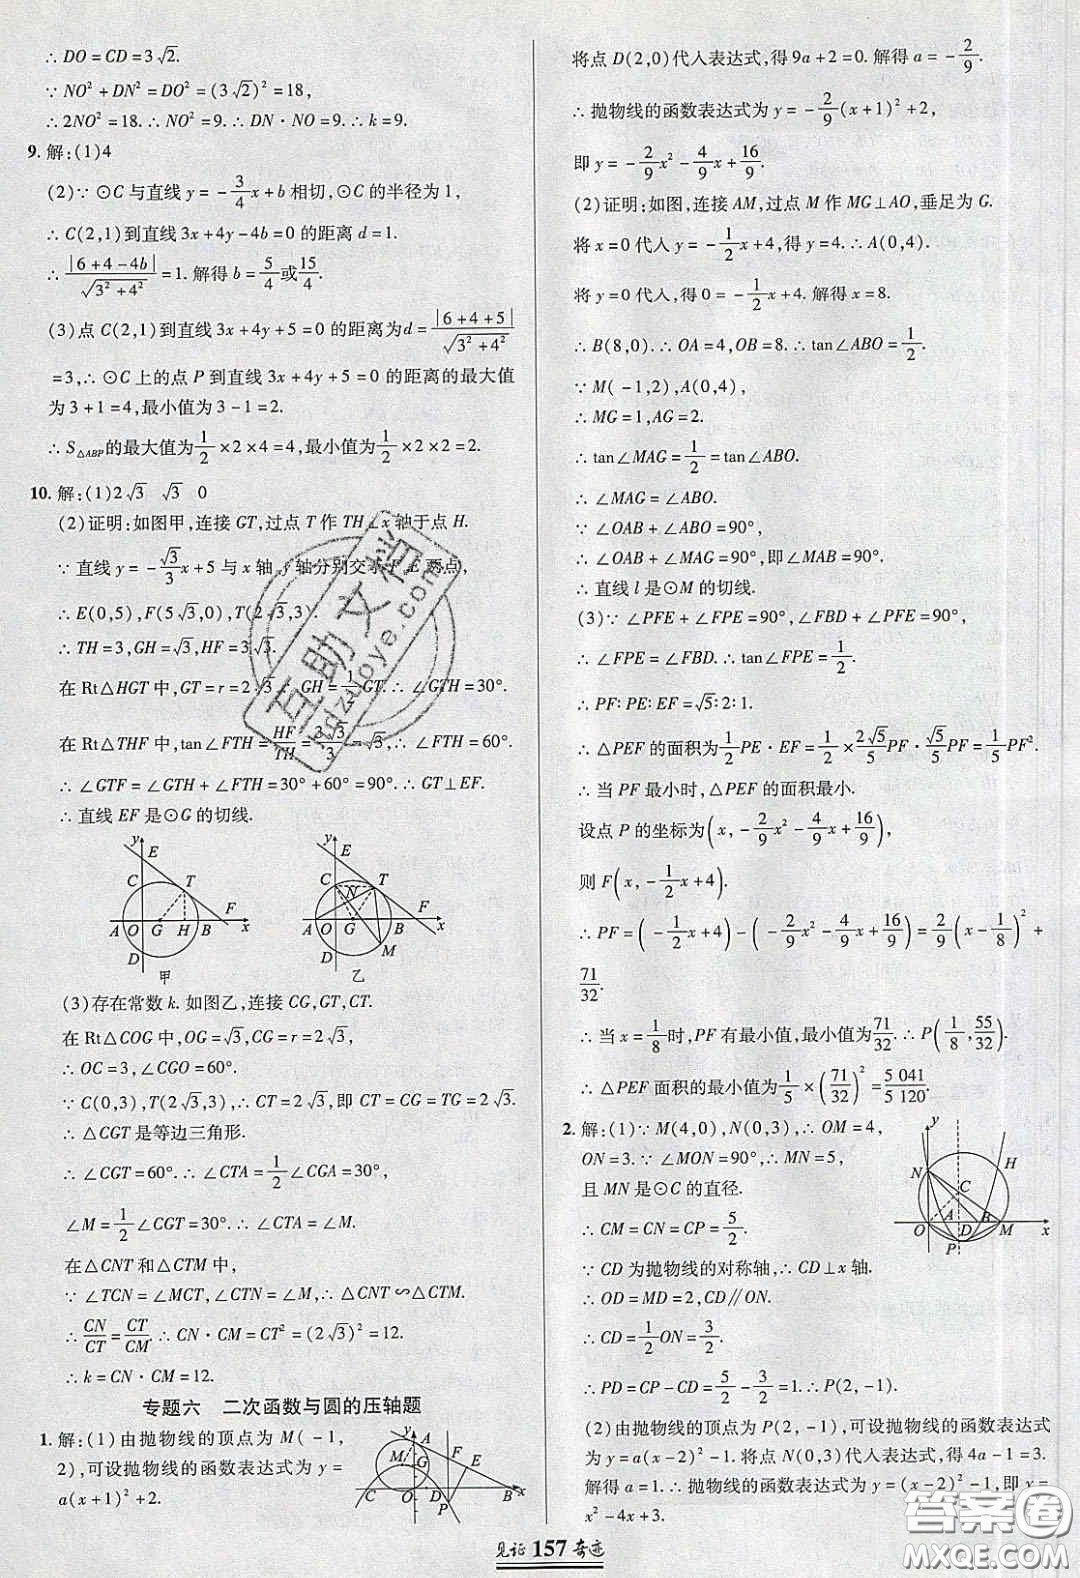 ∴ DO = CD = 3√2.
∵ NO² + DN² = DO² = (3√2)² = 18,
∴ 2NO² = 18. ∴ NO² = 9. ∴ DN · NO = 9. ∴ k = 9.
9. 解:(1)4
(2)∵ ⊙C 与直线 y = -3/4x + b 相切,⊙C 的半径为 1,
∴ C(2,1)到直线 3x + 4y - 4b = 0 的距离 d = 1.
∴ |6 + 4 - 4b|/√(3² + 4²) = 1. 解得 b = 5/4 或 15/4.
(3)点 C(2,1)到直线 3x + 4y + 5 = 0 的距离为 d = |6 + 4 + 5|/√(3² + 4²)
= 3,∴ ⊙C 上的点 P 到直线 3x + 4y + 5 = 0 的距离的最大值
为 3 + 1 = 4,最小值为 3 - 1 = 2.
∴ S△ABP的最大值为 1/2 × 2 × 4 = 4,最小值为 1/2 × 2 × 2 = 2.
10. 解:(1)2√3 √3 0
(2)证明:如图甲,连接 GT,过点 T 作 TH⊥x 轴于点 H.
∵ 直线 y = -√3/3x + 5 与 x 轴、y 轴分别交于 F、E 两点,
∴ E(0,5),F(5√3,0),T(2√3,3).
∴ TH = 3,GH = √3,HF = 3√3.
在 Rt△HGT 中,GT = r = 2√3. ∴ GH = 1/2GT. ∴ ∠GTH = 30°.
在 Rt△THF 中,tan∠FTH = HF/TH = 3√3/3 = √3,∴ ∠FTH = 60°.
∴ ∠GTF = ∠GTH + ∠FTH = 30° + 60° = 90°. ∴ GT⊥EF.
∴ 直线 EF 是⊙G 的切线.
y E C T A O G H B F x D 甲
y E C N T A O G B F x D M 乙
(3)存在常数 k. 如图乙,连接 CG,GT,CT.
在 Rt△COG 中,OG = √3,CG = r = 2√3.
∴ OC = 3,∠CGO = 60°.
∵ C(0,3),T(2√3,3),∴ CT = 2√3,即 CT = CG = TG = 2√3.
∴ △CGT 是等边三角形.
∴ ∠CGT = 60°. ∴ ∠CTA = 1/2∠CGA = 30°,
∠M = 1/2∠CGT = 30°. ∴ ∠CTA = ∠M.
在△CNT 和△CTM 中,
∵ ∠TCN = ∠MCT,∠CTN = ∠M,∴ △CNT∽△CTM.
∴ CN/CT = CT/CM. ∴ CN · CM = CT² = (2√3)² = 12.
∴ k = CN · CM = 12.
专题六 二次函数与圆的压轴题
1. 解:(1)由抛物线的顶点为 M(-1,
2),可设抛物线的函数表达式为 y =
a(x + 1)² + 2.
y A M G F E C O D P B x
将点 D(2,0)代人表达式,得 9a + 2 = 0. 解得 a = -2/9.
∴ 抛物线的函数表达式为 y = -2/9(x + 1)² + 2,
即 y = -2/9x² - 4/9x + 16/9.
(2)证明:如图,连接 AM,过点 M 作 MG⊥AO,垂足为 G.
将 x = 0 代人 y = -1/2x + 4,得 y = 4. ∴ A(0,4).
将 y = 0 代人,得 0 = -1/2x + 4. 解得 x = 8.
∴ B(8,0). ∴ OA = 4,OB = 8. ∴ tan∠ABO = 1/2.
∵ M(-1,2),A(0,4),
∴ MG = 1,AG = 2.
∴ tan∠MAG = 1/2 = tan∠ABO.
∴ ∠MAG = ∠ABO.
∵ ∠OAB + ∠ABO = 90°,
∴ ∠OAB + ∠MAG = 90°,即∠MAB = 90°.
∴ 直线 l 是⊙M 的切线.
(3)∵ ∠PFE + ∠FPE = 90°,∠FBD + ∠PFE = 90°,
∴ ∠FPE = ∠FBD. ∴ tan∠FPE = 1/2.
∴ PF∶PE∶EF = √5∶2∶1.
∴ △PEF 的面积为 1/2PE · EF = 1/2 × 2√5/5PF · √5/5PF = 1/5PF².
∴ 当 PF 最小时,△PEF 的面积最小.
设点 P 的坐标为(x, -2/9x² - 4/9x + 16/9),
则 F(x, -1/2x + 4).
∴ PF = (-1/2x + 4) - (-2/9x² - 4/9x + 16/9) = 2/9(x - 1/8)² +
71/32.
∴ 当 x = 1/8 时,PF 有最小值,最小值为 71/32. ∴ P(1/8, 55/32).
∴ △PEF 面积的最小值为 1/5 × (71/32)² = 5 041/5 120.
2. 解:(1)∵ M(4,0),N(0,3),∴ OM = 4,
ON = 3. ∵ ∠MON = 90°,∴ MN = 5,
且 MN 是⊙C 的直径.
∴ CM = CN = CP = 5/2.
∵ CD 为抛物线的对称轴,∴ CD⊥x 轴.
∴ OD = MD = 2,CD∥ON.
∴ CD = 1/2ON = 3/2.
∴ PD = CP - CD = 5/2 - 3/2 = 1. ∴ P(2, -1).
y N H C O A D B M x P
(2)由抛物线的顶点为 P(2, -1),可设抛物线的函数表达式
为 y = a(x - 2)² - 1. 将点 N(0,3)代人表达式,得 4a - 1 = 3.
解得 a = 1. ∴ 抛物线的函数表达式为 y = (x - 2)² - 1,即 y =
x² - 4x + 3.
见证 157 奇迹
互助文档
hdzuoye.com
答案圈
MXQE.COM